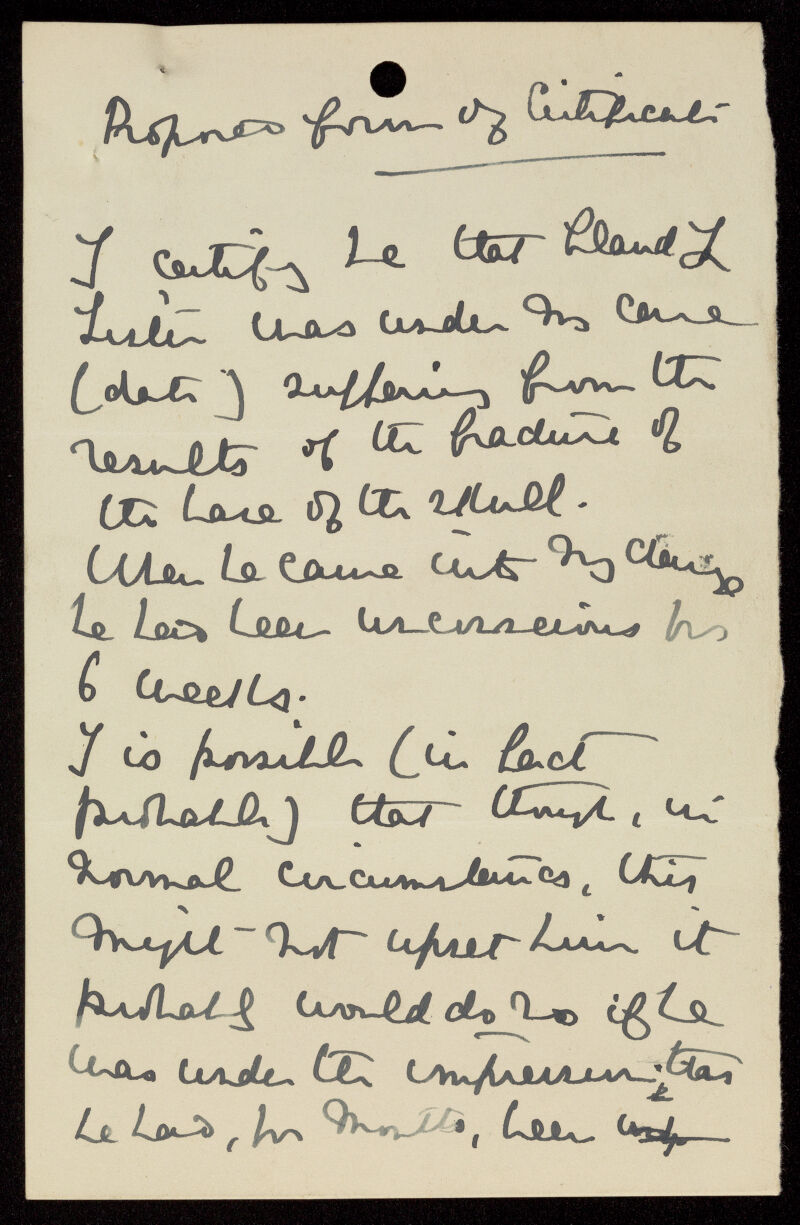 Proposed form of Certificate
I certify he that Claud L
Lister was under my care
(date) suffering from the
results of the fracture of
the base of the skull.
When he came into my charge
he had been unconscious for
6 weeks.
I is possible (in fact
probable) that though, in
normal circumstances, this
might not upset him it
probably would do so if he
was under the impression that
he had, for months, been